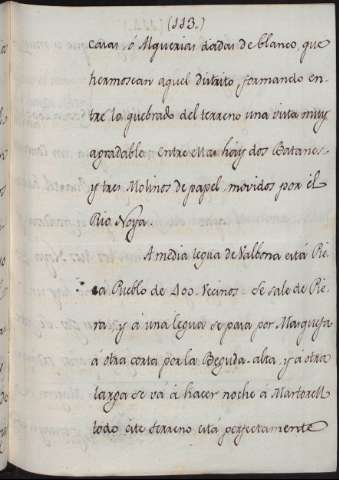 (113.)
casas, ó Alquerias dadas de blanco, que
hermosean aquel distrito, formando en-
tre lo quebrado del terreno una vista muy
agradable. Entre ellas hay dos Batanes
y tres Molinos de papel movidos por él
Rio Noya.
A media legua de Valbona está Pie-
ra Pueblo de 400. Vecinos. Se sale de Pie-
ra, y á una legua se pasa por Masquefa
á otra corta por la Beguda-alta, y a otra
larga se vá á hacer noche á Martorell
todo este terreno está perfectamente